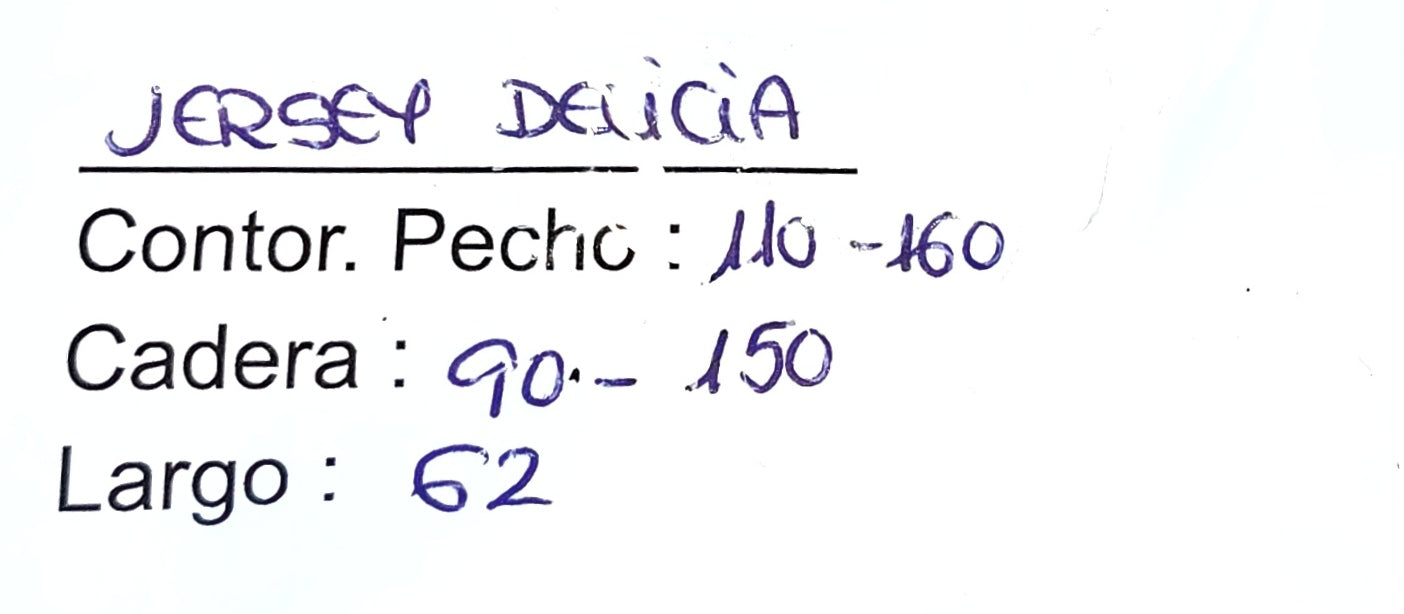 JERSEY DELICIA
Contor. Pecho : 110 - 160
Cadera : 90 - 150
Largo : 62